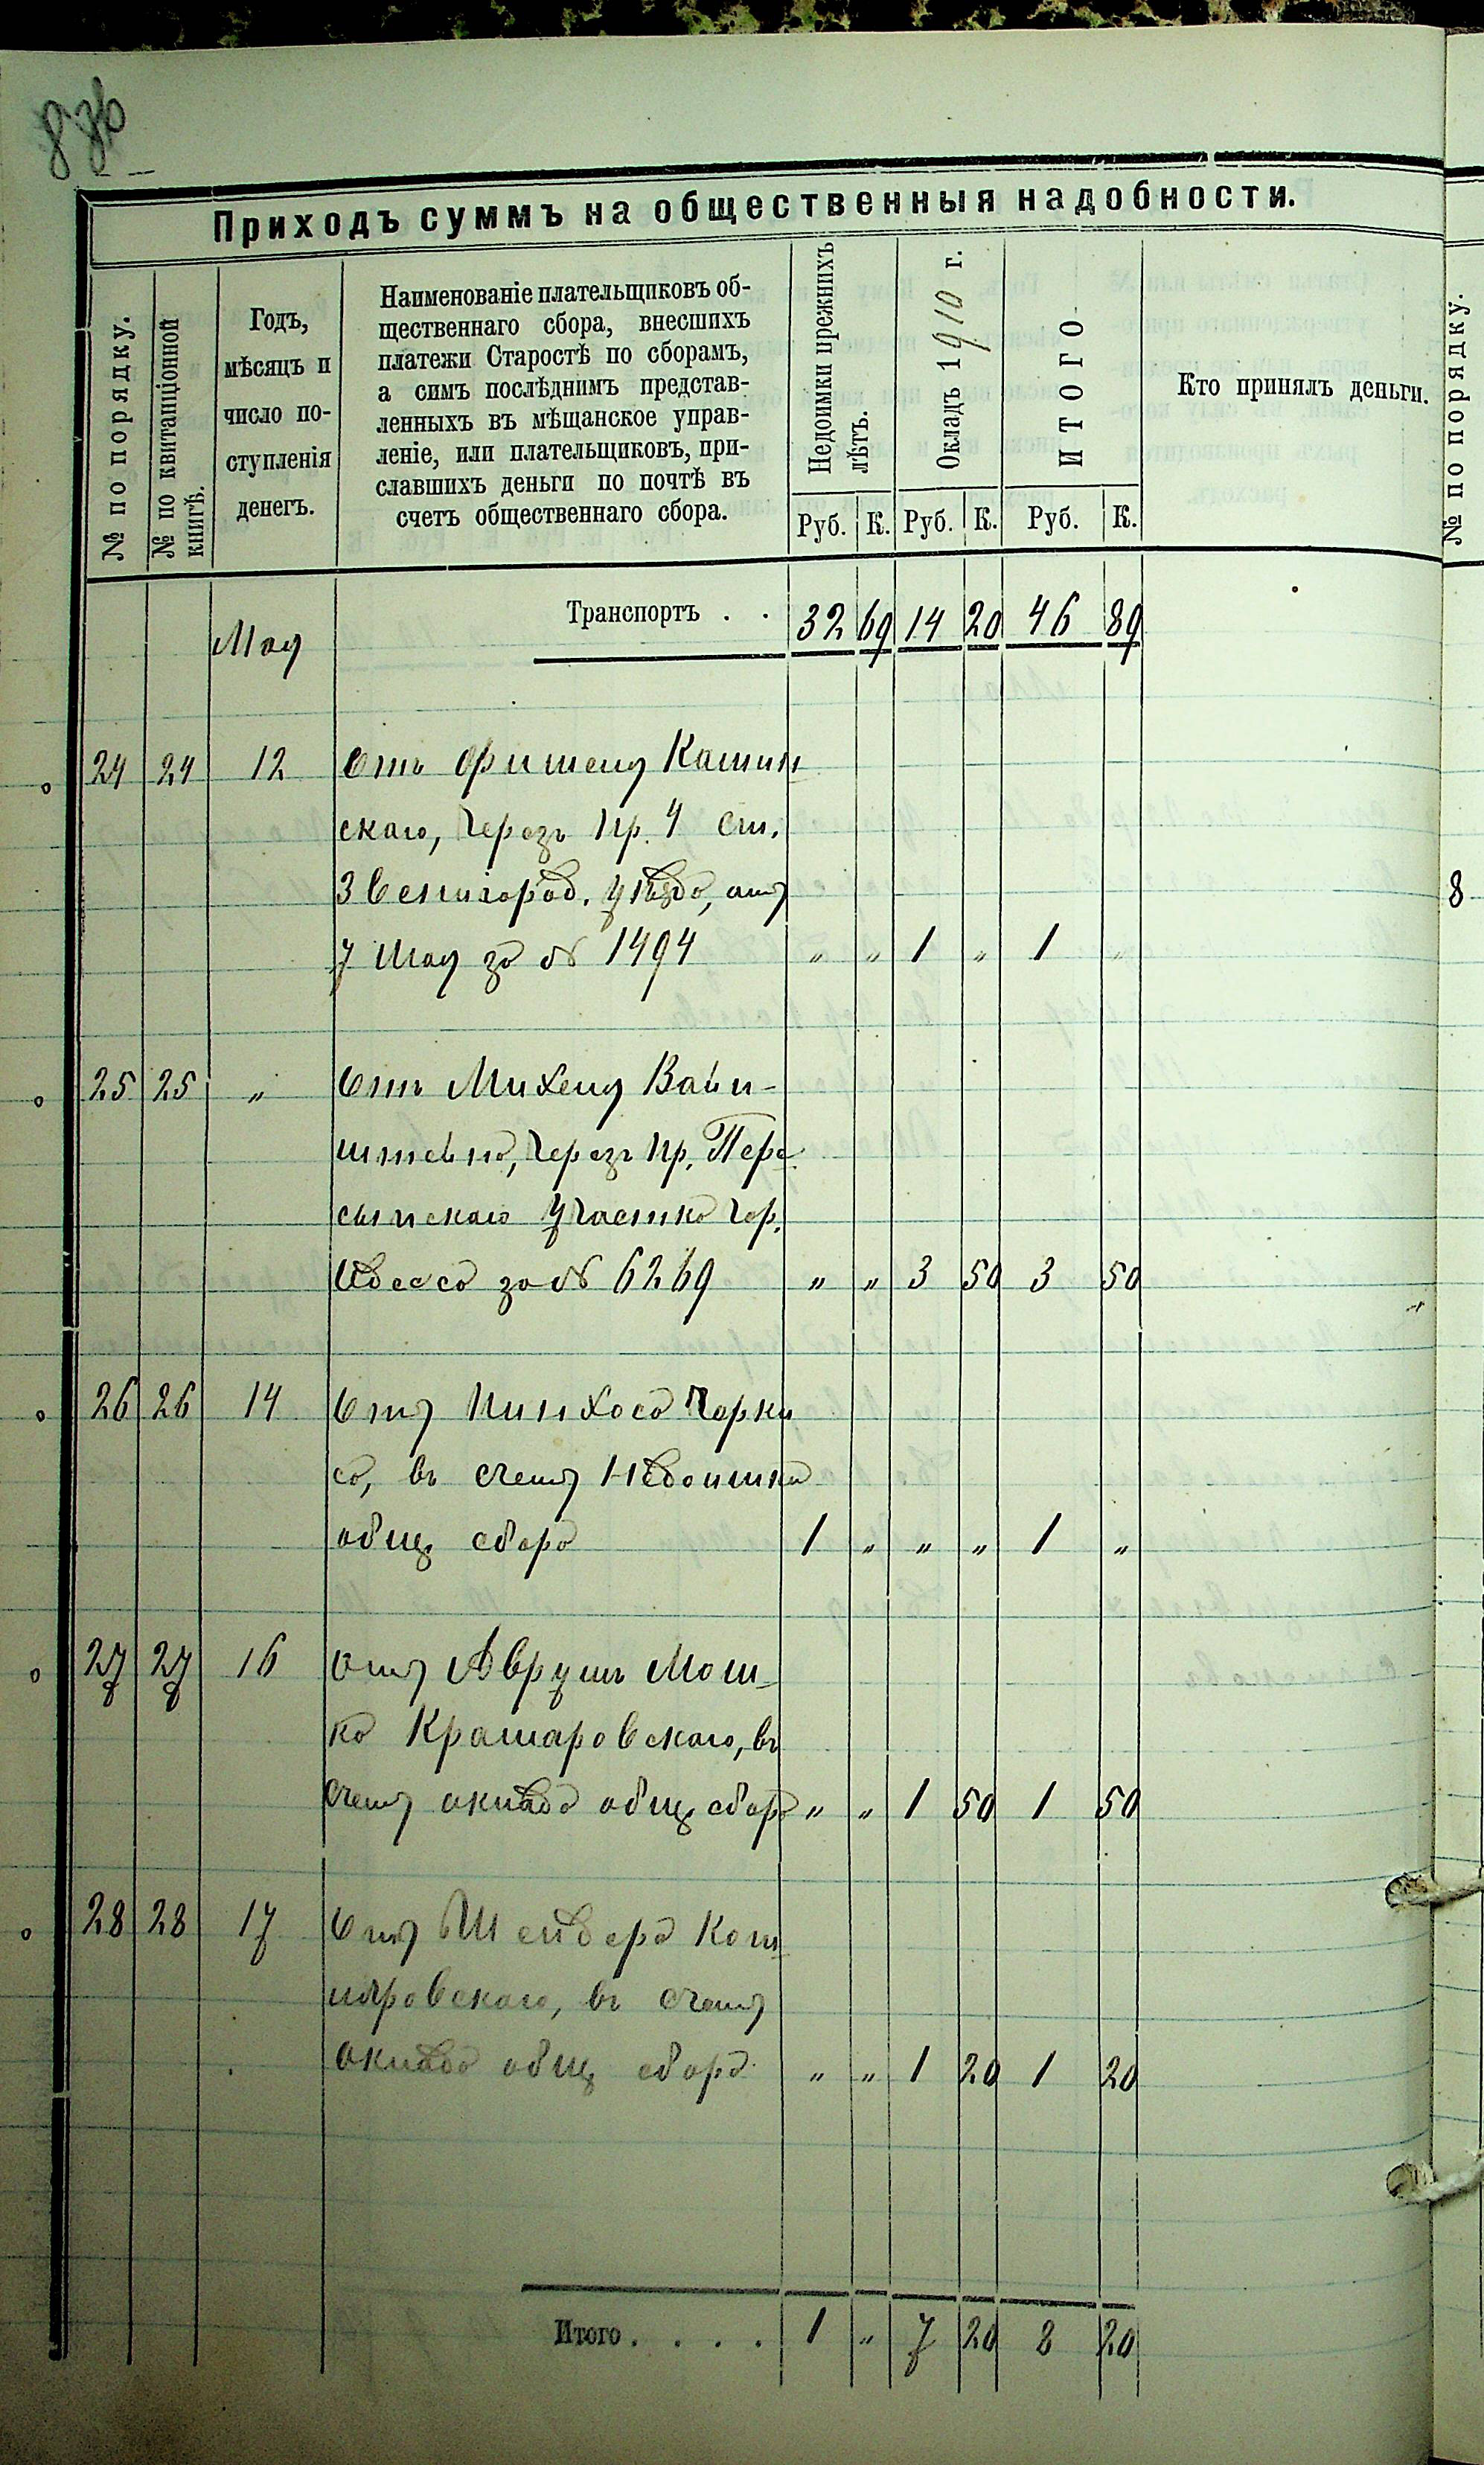 Приходъ суммъ на общественныя надобности.
№ по порядку.
№ по квитанціонной
книгѣ.
Годъ,
мѣсяцъ и
число по-
ступленія
денегъ.
Наименованіе плательщиковъ об-
щественнаго сбора, внесшихъ
платежи Старостѣ по сборамъ,
а симъ послѣднимъ представ-
ленныхъ въ мѣщанское управ-
леніе, или плательщиковъ, при-
славшихъ деньги по почтѣ въ
счетъ общественнаго сбора.
Недоимки прежнихъ
лѣтъ.
Окладъ 1910 г.
ИТОГО
Кто принялъ деньги.
Руб. К. Руб. К. Руб. К.
№ по порядку.
Транспортъ . . 32 69 14 20 46 89
Мая
24 24 12 Отъ Фишеля Камин
скаго, черезъ Пр. 4 ст.
Звенигород. уѣзда, отъ
7 Мая за № 1494 " " 1 " 1 "
8
25 25 " Отъ Михеля Вайн-
штейна, черезъ Пр. Пере
сыпскаго участка гор.
Одесса за № 6269 " " 3 50 3 50
26 26 14 Отъ Пинхоса Чорни
са, въ счетъ Недоимки
общ сбора 1 " " " 1 "
27 27 16 Отъ Аврумъ Мош-
ка Крамаровскаго, въ
счетъ оклада общ сбора " " 1 50 1 50
28 28 17 Отъ Шендера Ком
въ счетъ
оклада общ сбора " " 1 20 1 20
Итого . . . . 1 " 7 20 8 20